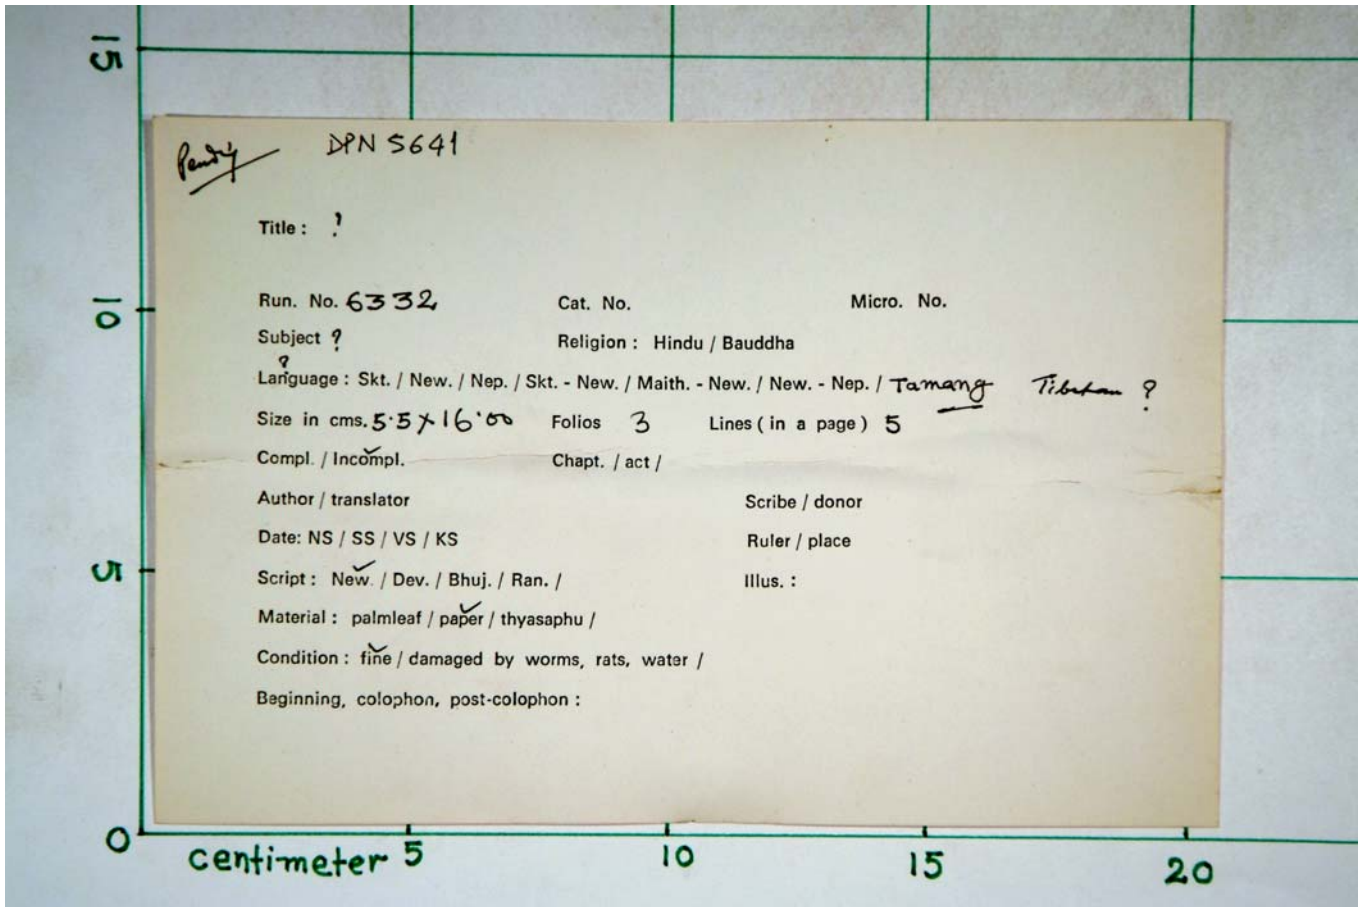 15
Pendig DPN 5641
Title : ?
10
Run. No. 6332 Cat. No. Micro. No.
Subject ? Religion : Hindu / Bauddha
?
Language : Skt. / New. / Nep. / Skt. - New. / Maith. - New. / New. - Nep. / Tamang Tibetan ?
Size in cms. 5.5 × 16.00 Folios 3 Lines ( in a page ) 5
Compl. / Incompl. Chapt. / act /
Author / translator Scribe / donor
Date: NS / SS / VS / KS Ruler / place
5
Script : New. / Dev. / Bhuj. / Ran. / Illus. :
Material : palmleaf / paper / thyasaphu /
Condition : fine / damaged by worms, rats, water /
Beginning, colophon, post-colophon :
0
centimeter 5 10 15 20